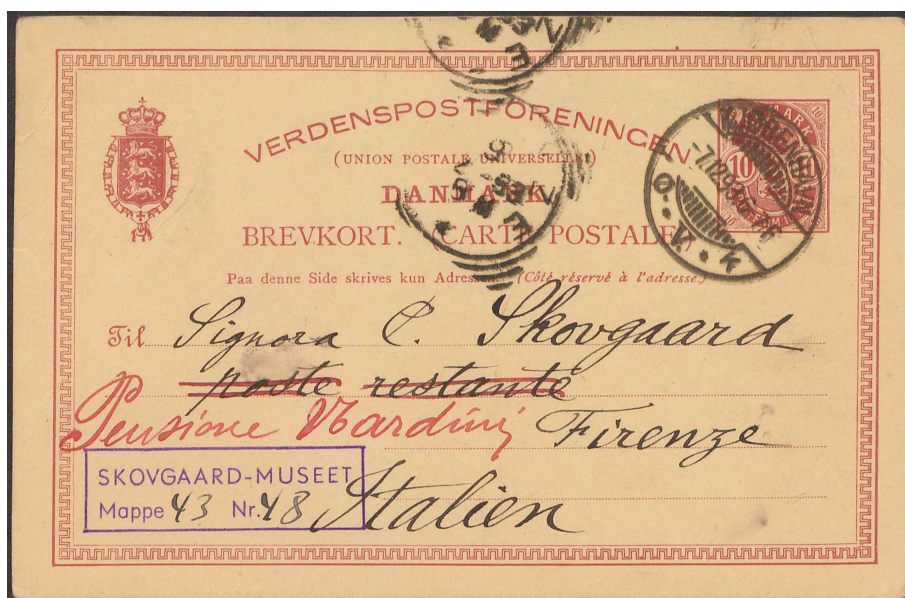 VERDENSPOSTFORENINGEN
(UNION POSTALE UNIVERSELLE)
DANMARK
BREVKORT. CARTE POSTALE.
Paa denne Side skrives kun Adressen. (Côté réservé à l'adresse.)
Til Signora C. Skovgaard
poste restante
Pensione Nardini Firenze
Italien
SKOVGAARD-MUSEET
Mappe 43 Nr. 48